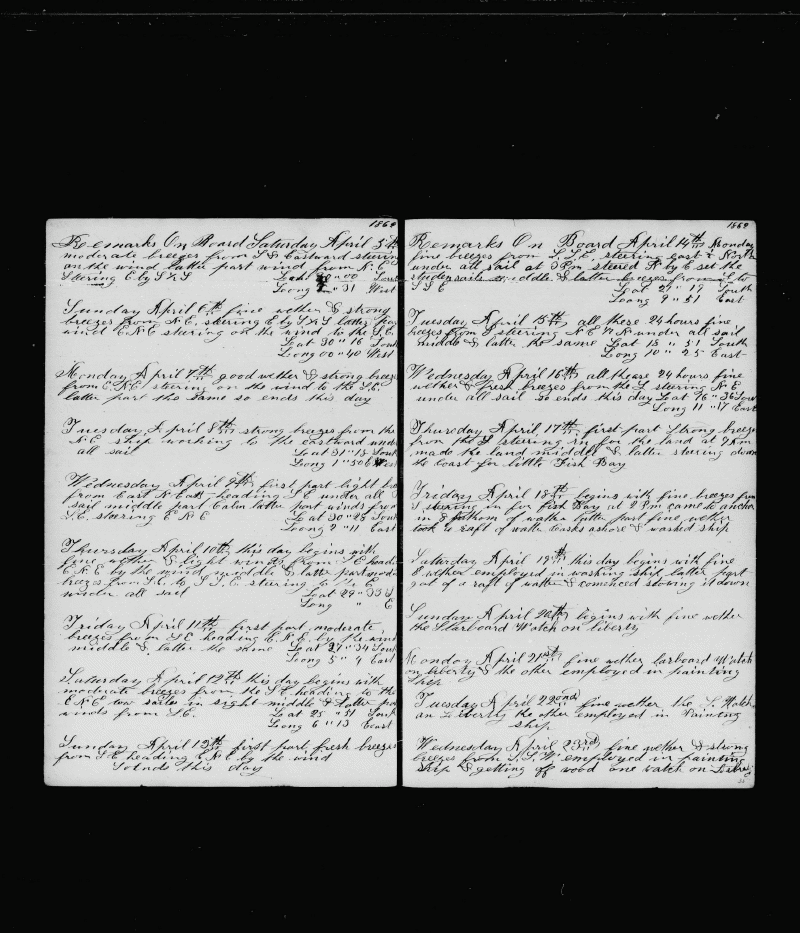 1862
Remarks On Board Saturday April 5th
moderate breezes from S & Eastward steering
on the wind latter part wind from N.E
steering E by S ½ S Loat 00 South
Loong " 31 West
Sunday April 6th fine wether & strong
breezes from N.E. steering E by S ½ S latter part
wind E.N.E steering on the wind to the S.E.
Loat 30 " 16 South
Loong 00 " 40 West
Monday April 7th good wether & strong breezes
from E.N.E steering on the wind to the S.E.
latter part the same so ends this day
Tuesday April 8th strong breezes from the
N.E ship working to the eastward under
all sail Loat 31 " 15 South
Loong 1 " 50 West
Wednesday April 9th first part light
from East N East heading S.E under all
sail middle part calm latter part winds from
S.E. steering E N E Loat 30 " 28 South
Loong 2 " 11 East
Thursday April 10th this day begins with
fine wether & light winds from S.E heading
E.N.E by the wind middle & latter part
breezes from S.E. to S.S.E steering E
under all sail Loat 29 " 33 S
Long " E
Friday April 11th first part moderate
breezes from S E heading E.N.E by the wind
middle & latter the same Loat 27 " 34 South
Loong 5 " 4 East
Saturday April 12th this day begins with
moderate breezes from the S.E heading to the
E N E tow sailes in sight middle & latter part
winds from S.E. Loat 25 " 51 South
Loong 6 " 13 East
Sunday April 13th first part fresh breezes
from S E heading E N E by the wind
So Ends this day
1862
Remarks On Board April 14th Monday
fine breezes from S.S.E. steering east & North
under all sail at 3 Pm steered N by E set the
studensails middle & latter breezes from E to
S S E Loat 22 " 19 South
Loong 9 " 51 East
Tuesday April 15th all these 24 hours fine
breezes from S steering N E ½ N under all sail
middle & latter the same Loat 18 " 51 South
Loong 10 " 25 East
Wednesday April 16th all these 24 hours fine
wether & fresh breezes from the S steering N E
under all sail so ends this day Loat 16 " 36 South
Long 11 " 17 East
Thursday April 17th first part Strong breezes
from the S steering in for the land at
made the land middle & latter stering down
the coast for little Fish Bay
Friday April 18th begins with fine breezes from
S stearing in for fish Bay at 2 Pm came to anchor
in 8 fathom of watter latter part fine wether
took a raft of watter Casks ashore & washed ship
Saturday April 19th this day begins with fine
wether employed in washing ship latter part
got of a raft of watter & comenced stowing it down
Sunday April 20th begins with fine wether
the Starboard Watch on liberty
Monday April 21st fine wether larboard Watch
on liberty & the other employed in painting
ship
Tuesday April 22nd fine wether the S. Watch
on Leiberty the other employed in Painting
ship
Wednesday April 23rd fine wether & strong
breezes from S.S.W. employed in painting
ship & getting off wood one watch on Liberty